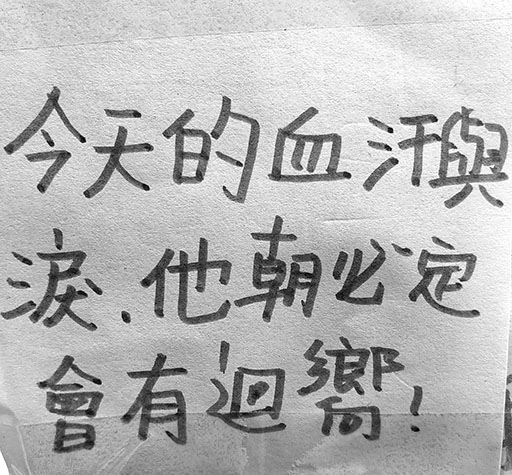 今天的血汗與
淚.他朝必定
會有迴嚮!